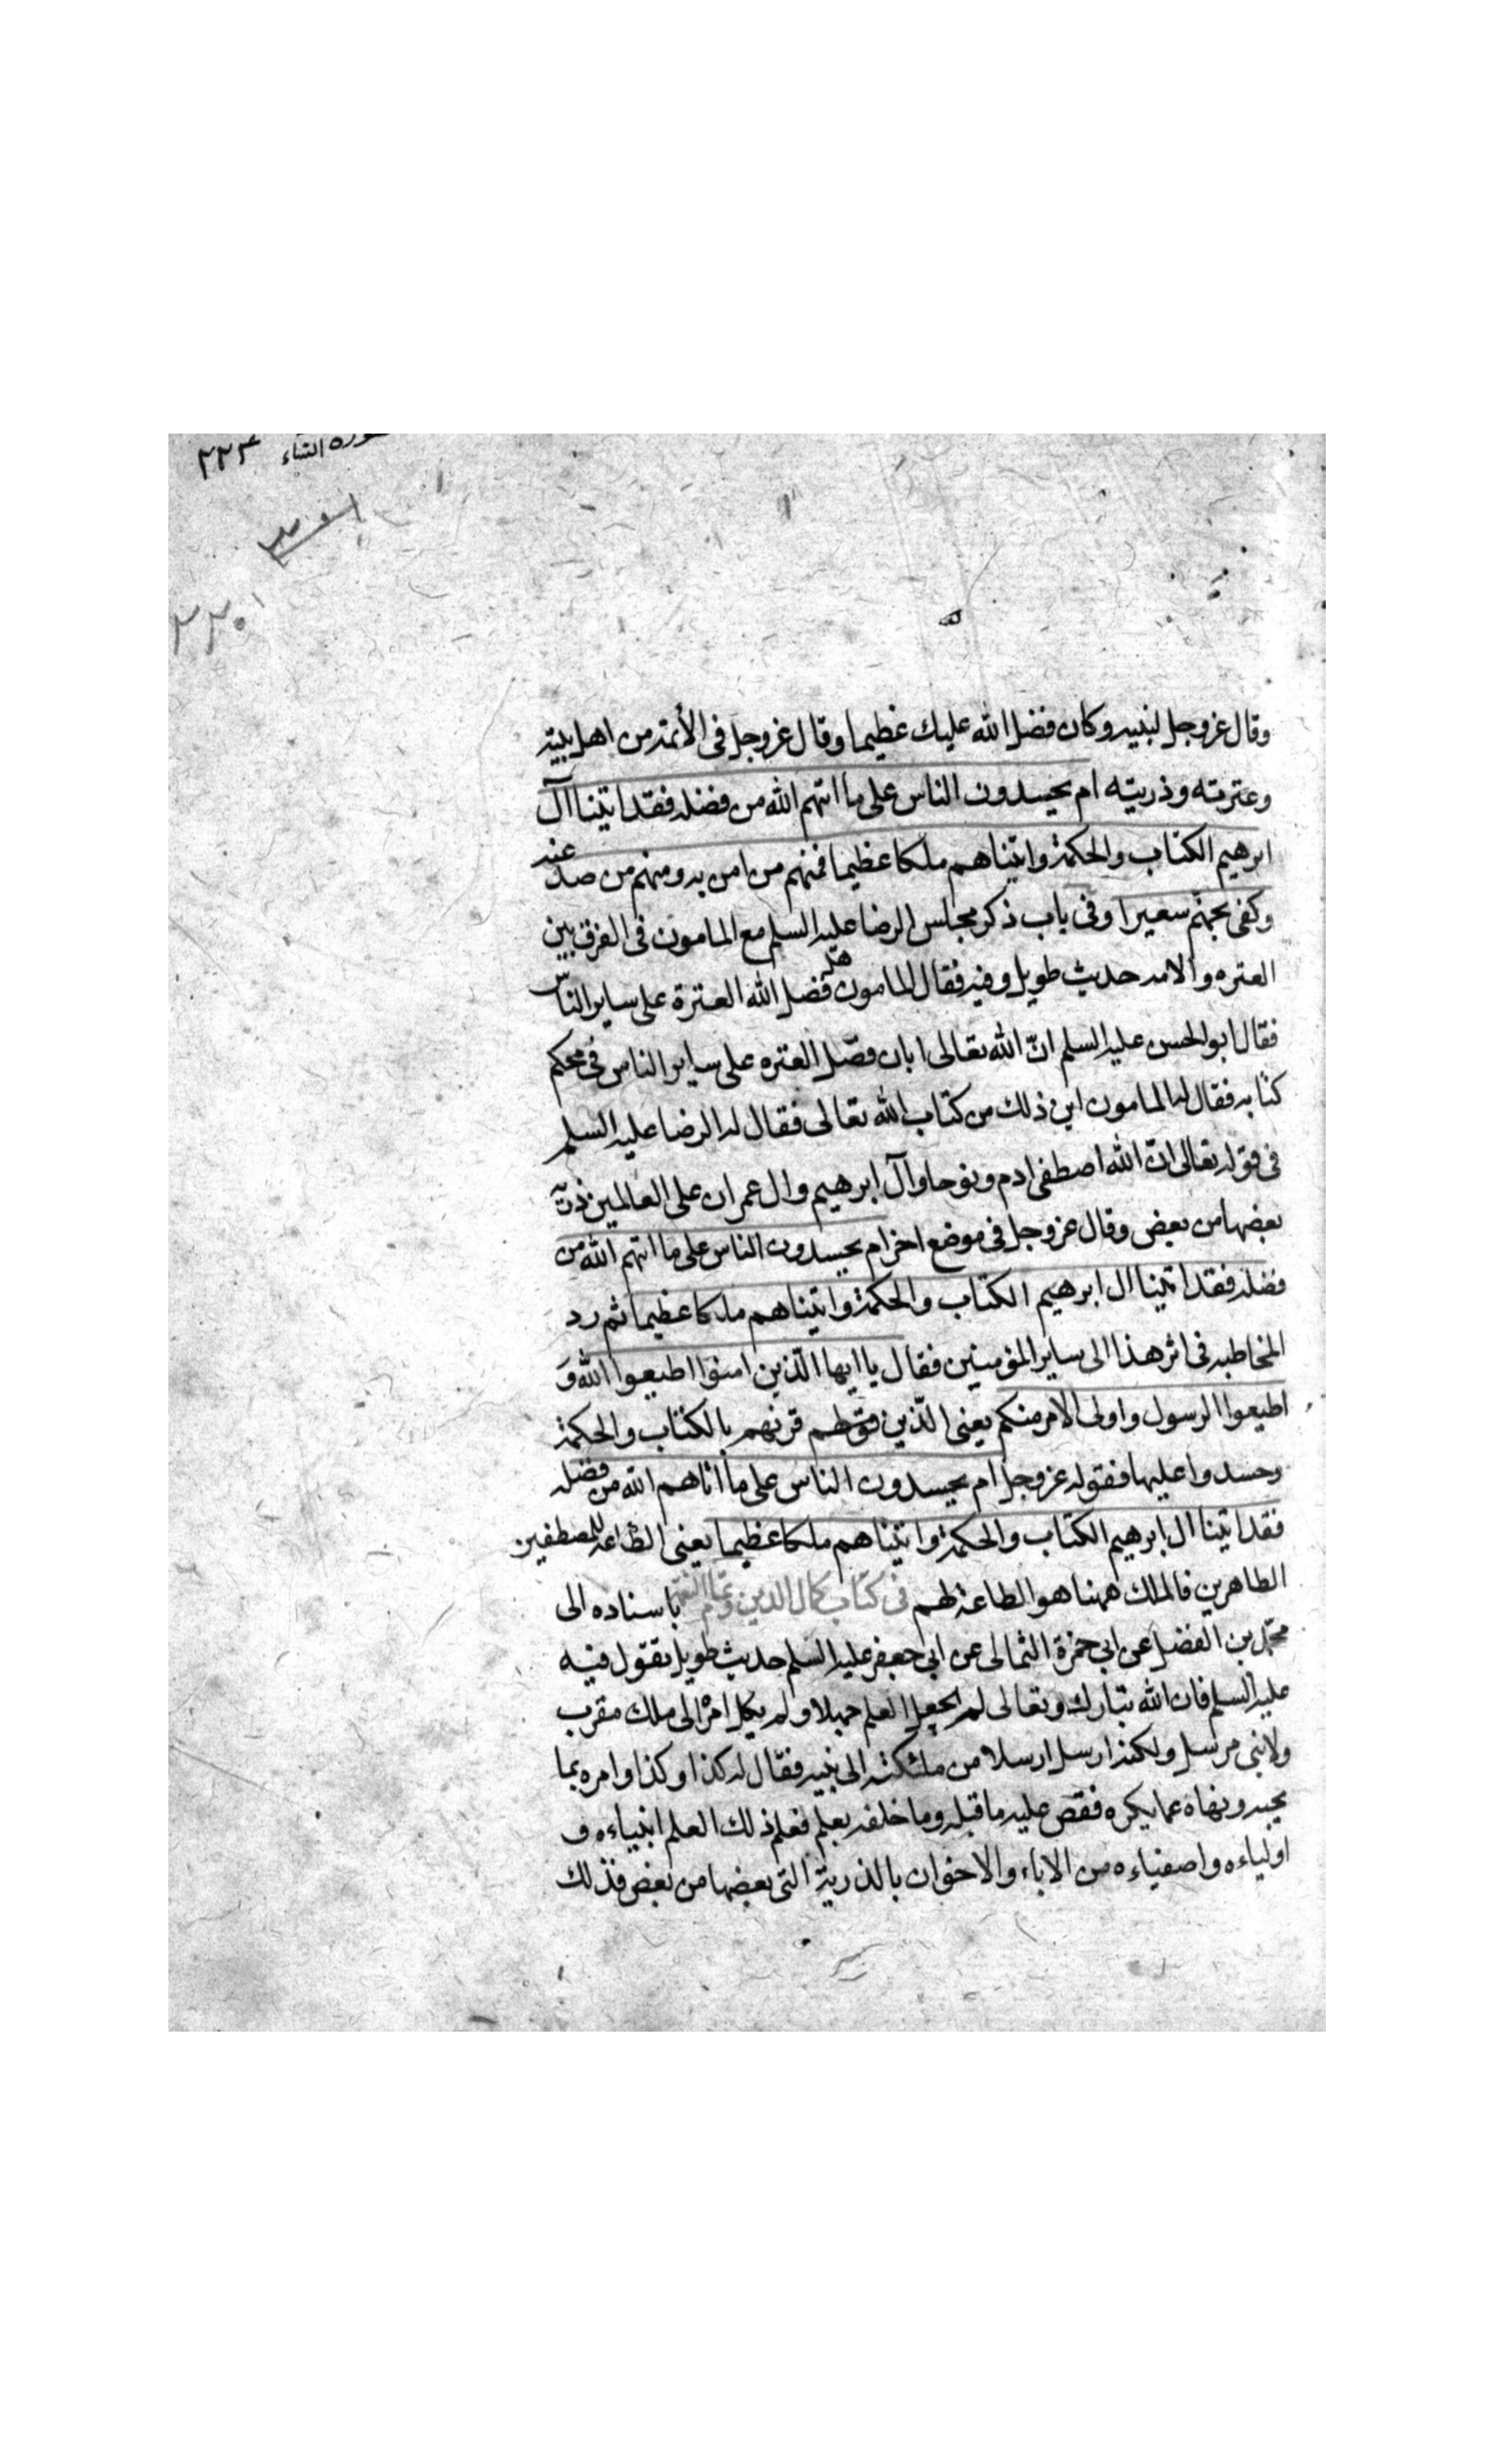 سوره النساء ٢٢٣
٢٢٠
وقال عزوجل لنبيه وكان فضل الله عليك عظيما وقال عزوجل فى الأئمة من اهل بيته
وعترته وذريته ام يحسدون الناس على ما اتيهم الله من فضله فقد اتينا آل
ابرهيم الكتاب والحكمة واتيناهم ملكا عظيما فمنهم من امن به ومنهم من صد عنه
وكفى بجهنم سعيرا وفى باب ذكر مجلس الرضا عليه السلم مع المامون فى الفرق بين
العتره والامه حديث طويل وفيه فقال المامون هل فضل الله العترة على ساير الناس
فقال ابو الحسن عليه السلم انّ الله تعالى ابان فضل العتره على ساير الناس فى محكم
كتابه فقال له المامون اين ذلك من كتاب الله تعالى فقال له الرضا عليه السلم
فى قوله تعالى انّ الله اصطفى ادم ونوحا وآل ابرهيم وال عمران على العالمين ذرية
بعضها من بعض وقال عزوجل فى موضع اخر ام يحسدون الناس على ما اتيهم الله من
فضله فقد اتينا ال ابرهيم الكتاب والحكمة واتيناهم ملكا عظيما ثم رد
المخاطبه فى اثر هذا الى ساير المؤمنين فقال يا ايها الّذين امنوا اطيعوا الله وَ
اطيعوا الرسول واولى الامر منكم يعنى الّذين قرنهم بالكتاب والحكمة
وحسدوا عليها فقوله عزوجل ام يحسدون الناس على ما اتاهم الله من فضله
فقد اتينا ال ابرهيم الكتاب والحكمة واتيناهم ملكا عظيما يعنى الطاعة للمصطفين
الطاهرين فالملك ههنا هو الطاعة لهم فى كتاب كمال الدين وتمام النعمة باسناده الى
محمّد بن الفضل عن ابى حمزة الثمالى عن ابى جعفر عليه السلم حديث طويل يقول فيه
عليه السلم فان الله تبارك وتعالى لم يجعل العلم جهلا ولم يكل امره الى ملك مقرب
ولا نبى مرسل ولكنه ارسل ارسلا من ملئكته الى نبيه فقال له كذا وكذا وامره بما
يحبه ونهاه عما يكره فقص عليه ما قبله وما خلفه بعلم فعلم ذلك العلم انبياءه و
اولياءه واصفياءه من الاباء والاخوان بالذرية التى بعضها من بعض فذلك